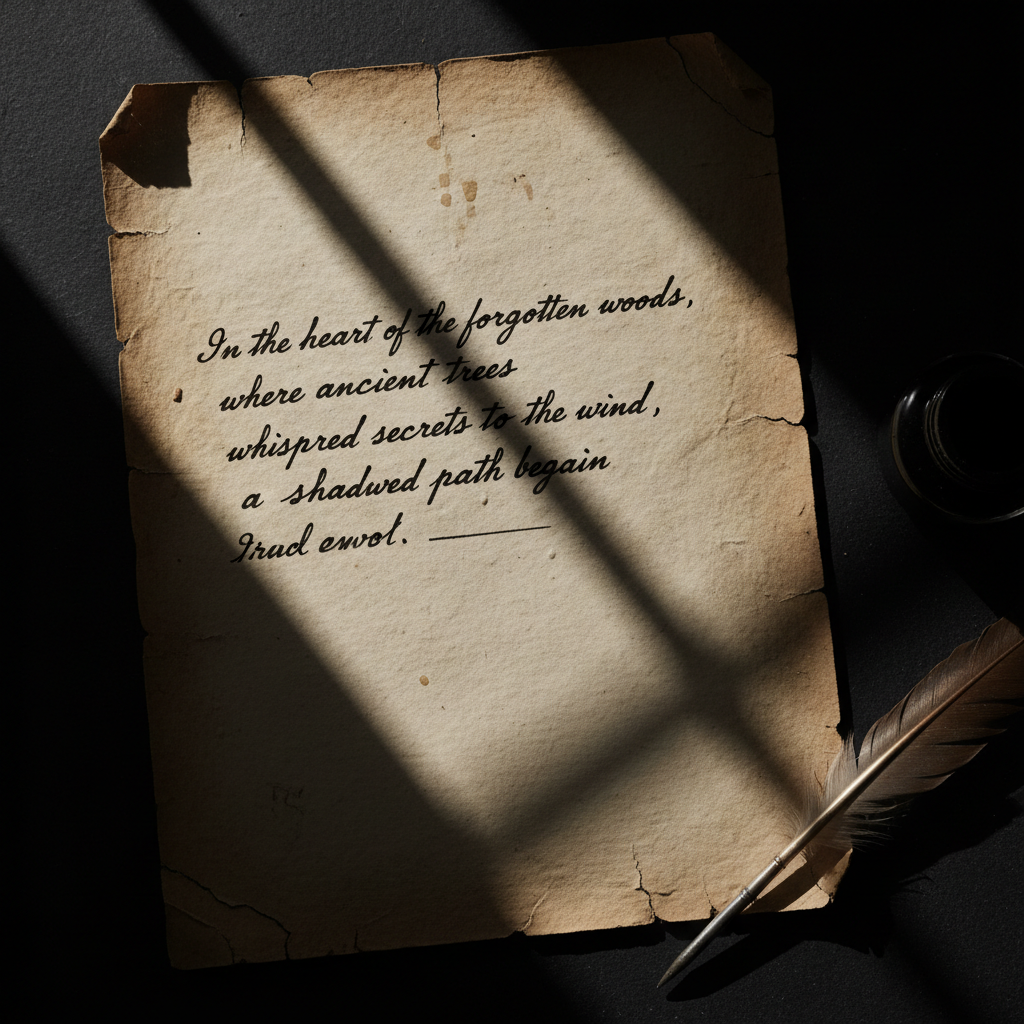 In the heart of the forgotten woods,
where ancient trees
whispred secrets to the wind,
a shadwed path begain